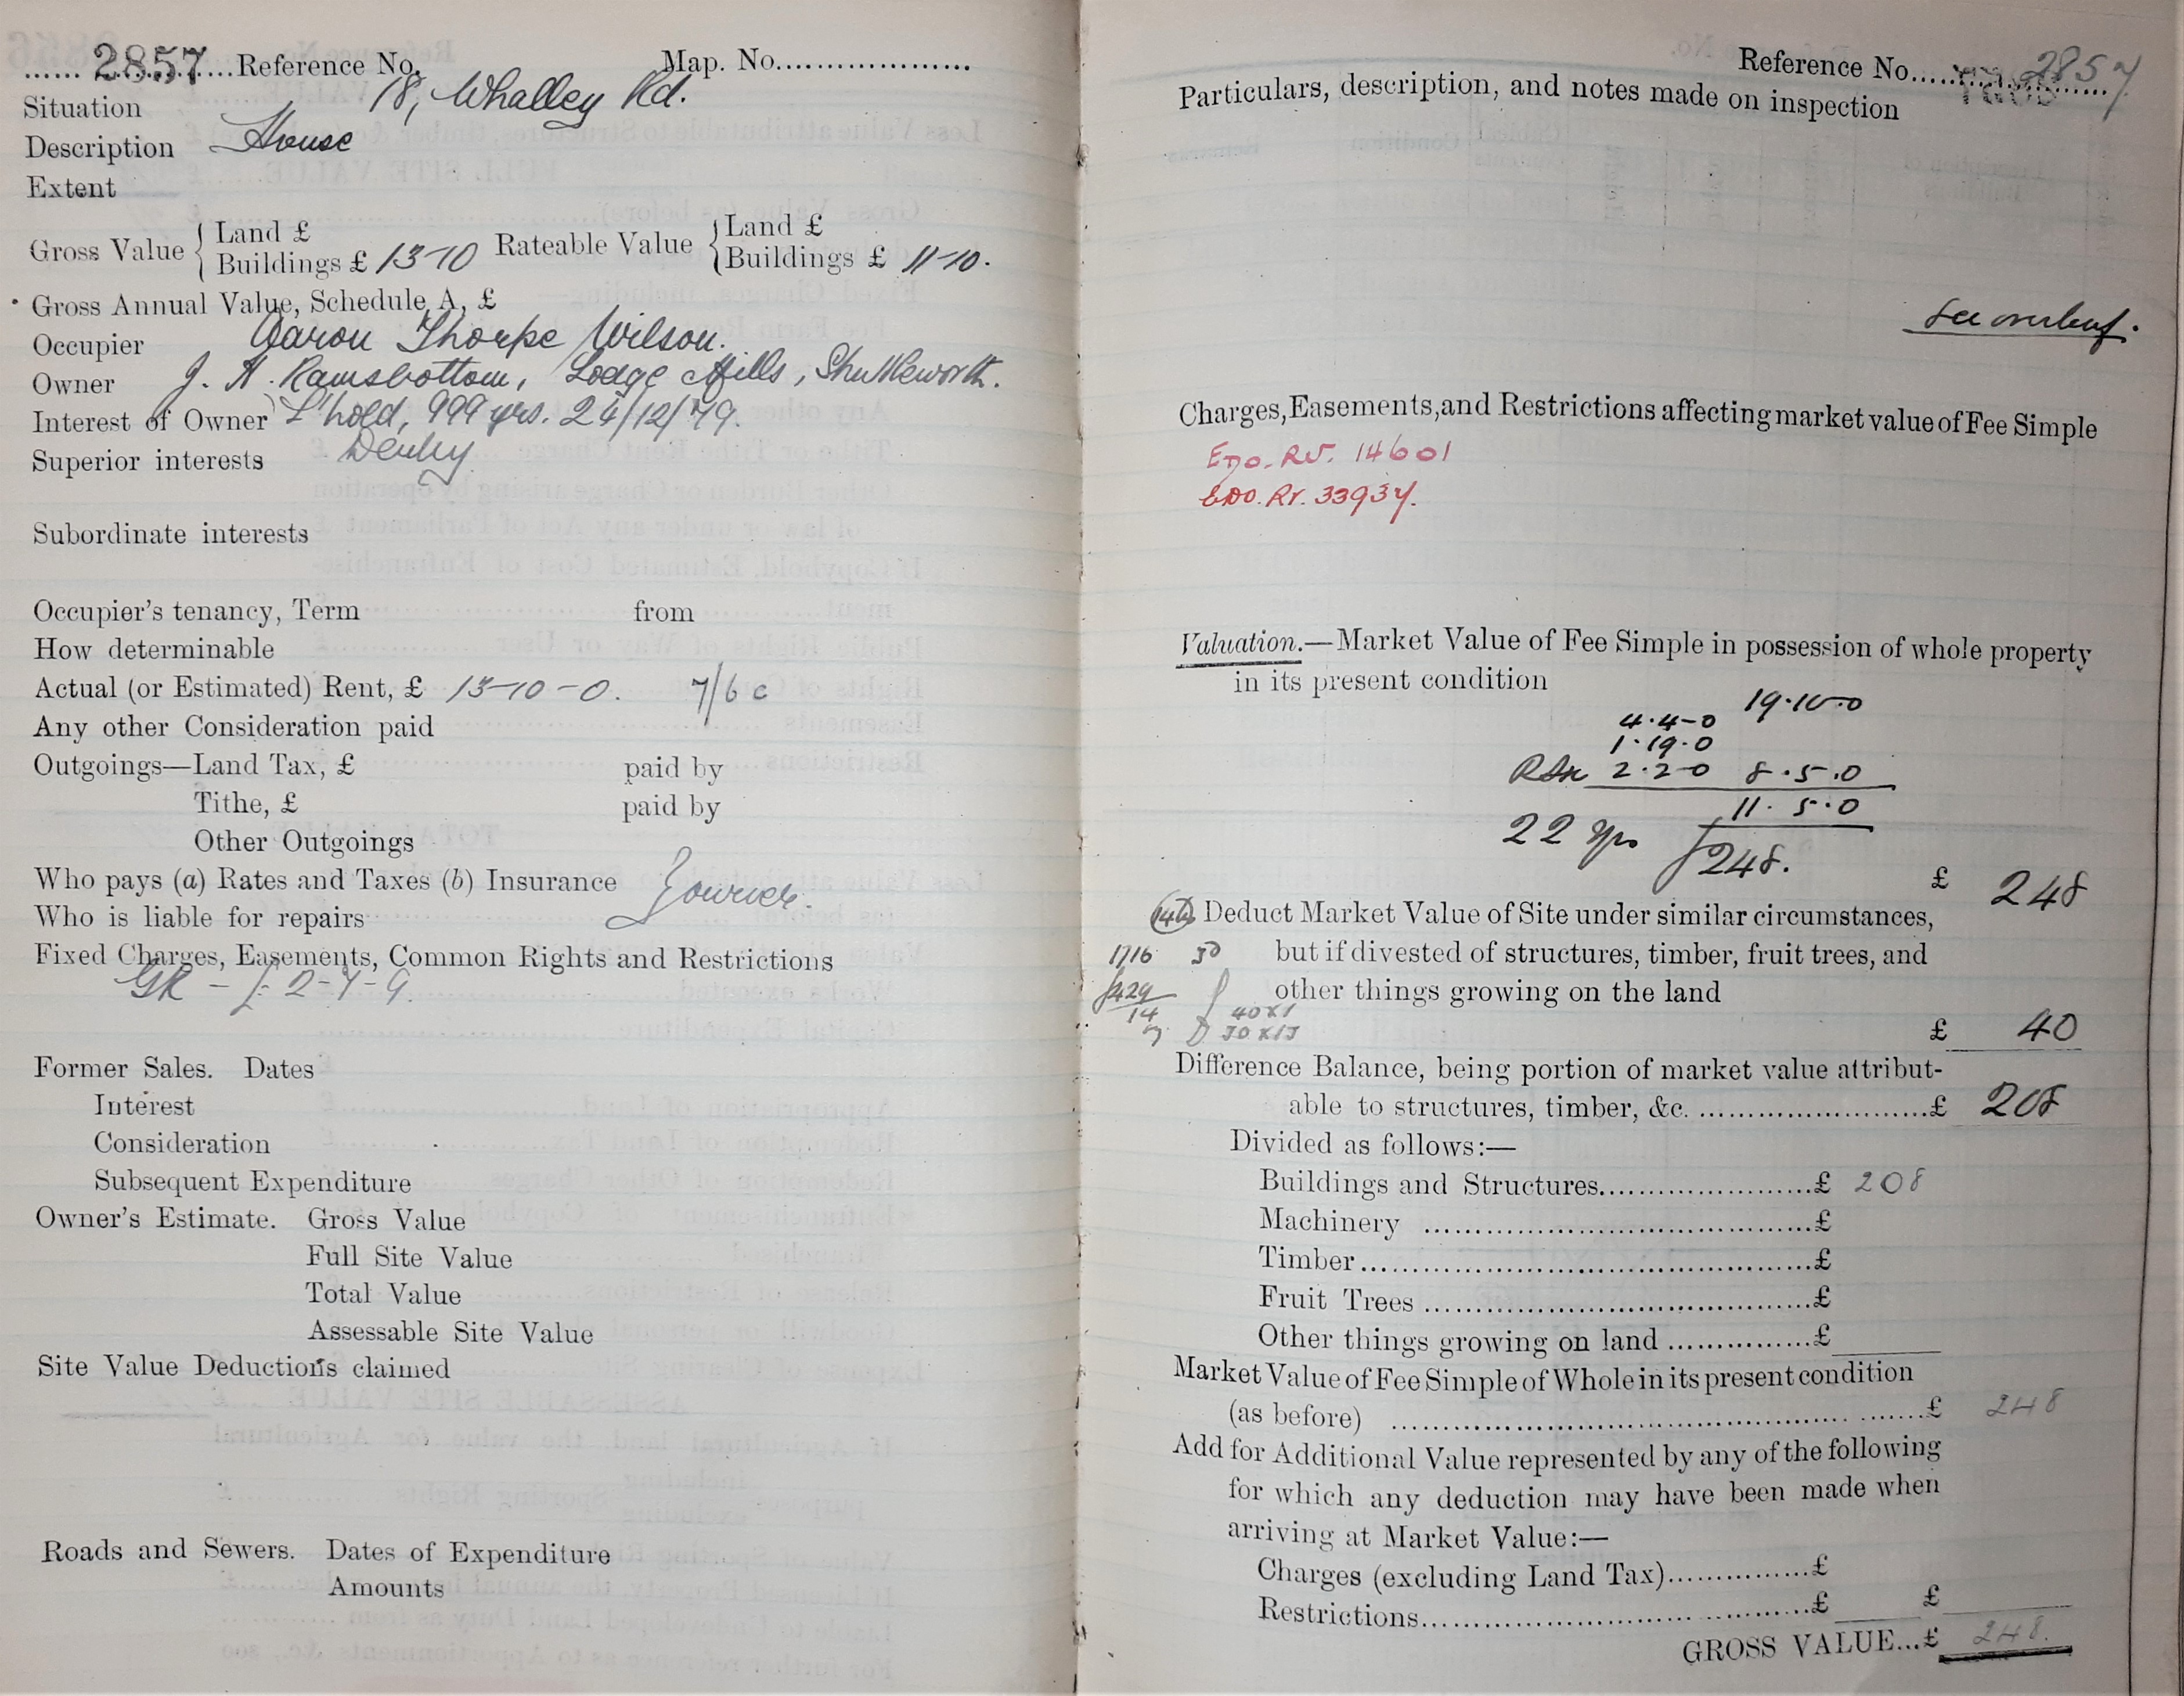 2857 Reference No. Map. No.
Situation 18, Whalley Rd.
Description House
Extent
Gross Value { Land £
Buildings £ 13-10
Rateable Value { Land £
Buildings £ 11-10.
Gross Annual Value, Schedule A, £
Occupier Aaron Thorpe Wilson.
Owner J. H. Ramsbottom, Lodge Mills, Shuttleworth.
Interest of Owner L'hold, 999 yrs. 24/12/79.
Superior interests
Subordinate interests
Occupier's tenancy, Term from
How determinable
Actual (or Estimated) Rent, £ 13-10-0. 7/6 c
Any other Consideration paid
Outgoings—Land Tax, £ paid by
Tithe, £ paid by
Other Outgoings
Who pays (a) Rates and Taxes (b) Insurance } owner.
Who is liable for repairs
Fixed Charges, Easements, Common Rights and Restrictions
GR - £2-7-9.
Former Sales. Dates
Interest
Consideration
Subsequent Expenditure
Owner's Estimate. Gross Value
Full Site Value
Total Value
Assessable Site Value
Site Value Deductions claimed
Roads and Sewers. Dates of Expenditure
Amounts
Reference No. 2857
Particulars, description, and notes made on inspection
See overleaf.
Charges, Easements, and Restrictions affecting market value of Fee Simple
14601
33937.
Valuation.—Market Value of Fee Simple in possession of whole property
in its present condition
19.10.0
4.4-0
1.19.0
2.2-0 8.5.0
11.5.0
22 yrs £248.
£ 248
Deduct Market Value of Site under similar circumstances,
1716 but if divested of structures, timber, fruit trees, and
£429 other things growing on the land
14 40x1
£ 40
Difference Balance, being portion of market value attribut-
able to structures, timber, &c. £ 208
Divided as follows:—
Buildings and Structures £ 208
Machinery £
Timber £
Fruit Trees £
Other things growing on land £
Market Value of Fee Simple of Whole in its present condition
(as before) £ 248
Add for Additional Value represented by any of the following
for which any deduction may have been made when
arriving at Market Value:—
Charges (excluding Land Tax) £
Restrictions £ £
GROSS VALUE...£ 248.